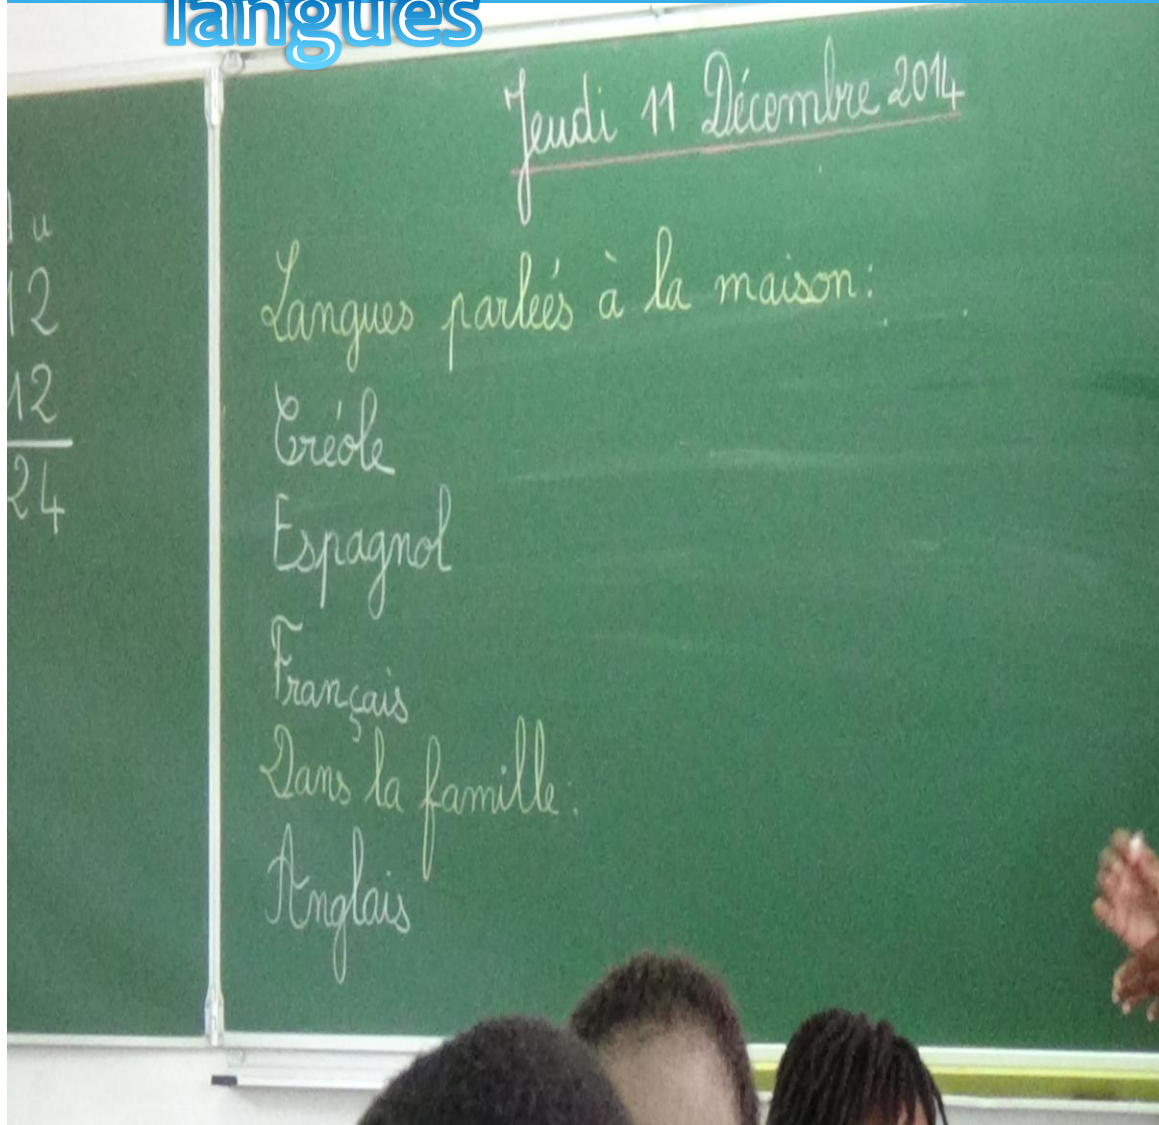 langues
Jeudi 11 Décembre 2014
Langues parleés à la maison:
Créole
Espagnol
Français
Dans la famille:
Anglais
u
12
12
24